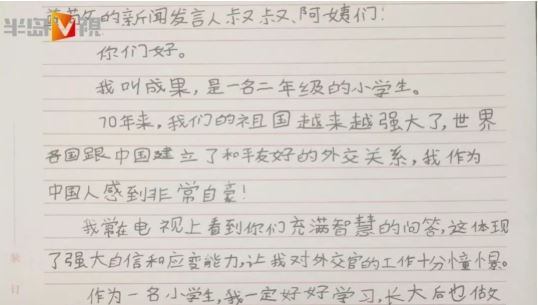 半岛V视
的新闻发言人叔叔、阿姨们:
你们好。
我叫成果,是一名二年级的小学生。
70年来,我们的祖国越来越强大了,世界
各国跟中国建立了和平友好的外交关系,我作为
中国人感到非常自豪!
我常在电视上看到你们充满智慧的问答,这体现
了强大自信和应变能力,让我对外交官的工作十分憧憬。
作为一名小学生,我一定好好学习,长大后也做